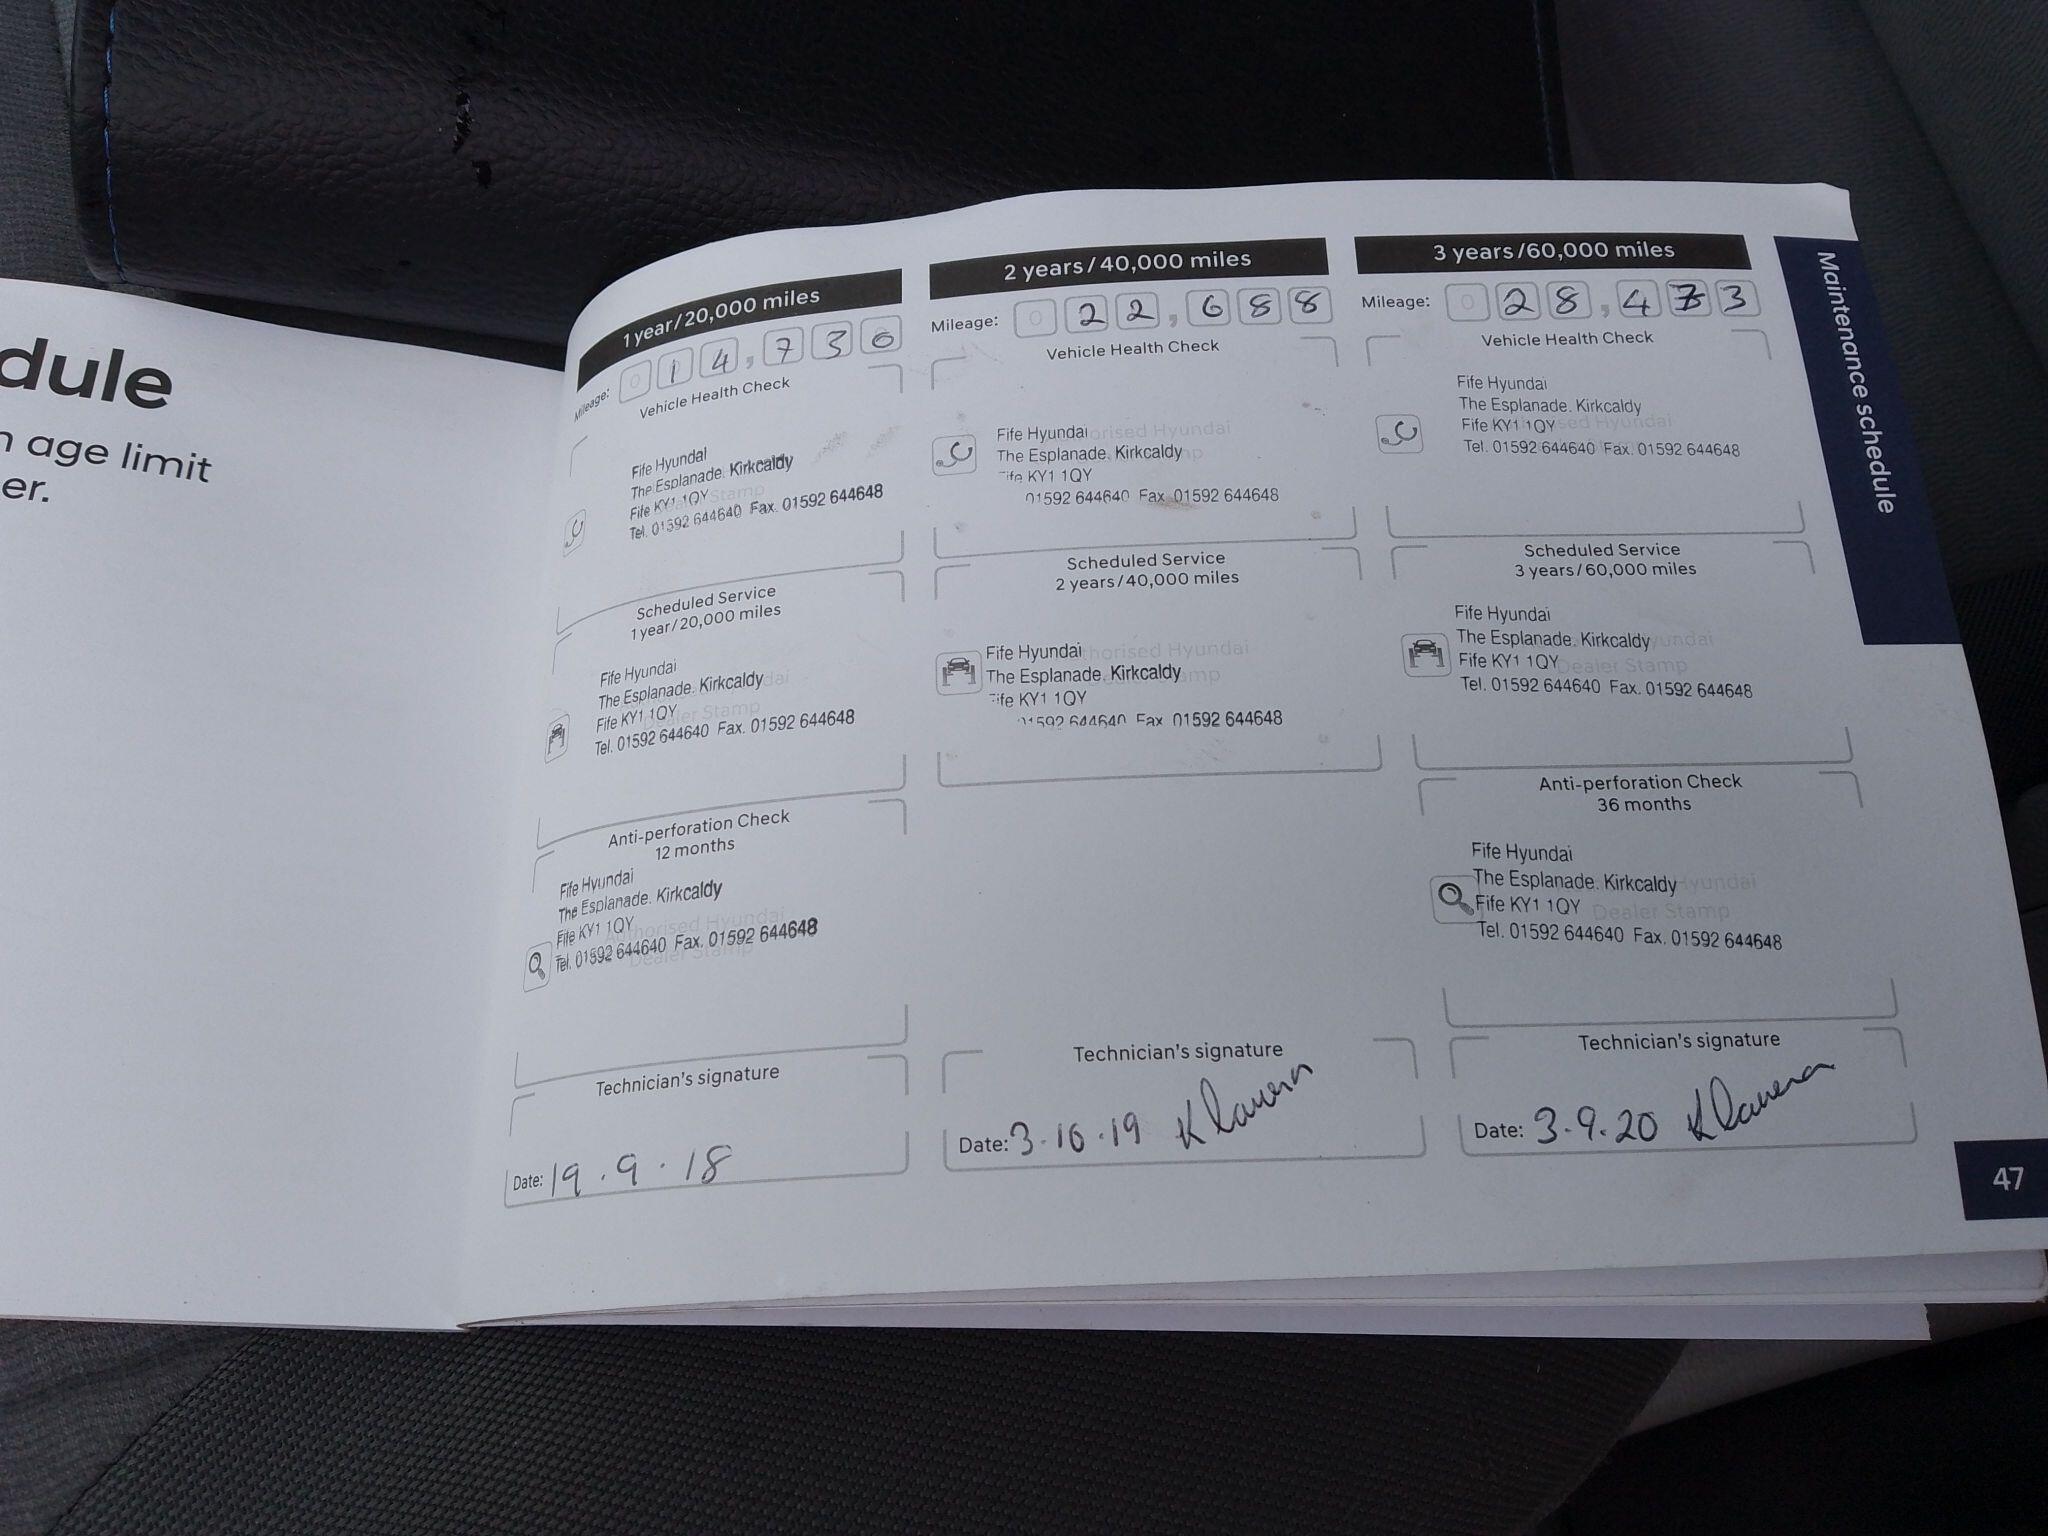 dule
n age limit
er.
1 year/20,000 miles
Mileage: 0 1 4 , 7 3 6
Vehicle Health Check
Fife Hyundai
The Esplanade. Kirkcaldy
Fife KY1 1QY
Tel. 01592 644640 Fax. 01592 644648
Scheduled Service
1 year/20,000 miles
Fife Hyundai
The Esplanade. Kirkcaldy
Fife KY1 1QY
Dealer Stamp
Tel. 01592 644640 Fax. 01592 644648
Anti-perforation Check
12 months
Fife Hyundai
The Esplanade. Kirkcaldy
Fife KY1 1QY
Authorised Hyundai
Tel. 01592 644640 Fax. 01592 644648
Dealer Stamp
Technician's signature
Date: 19.9.18
2 years/40,000 miles
Mileage: 0 2 2 , 6 8 8
Vehicle Health Check
Fife Hyundai
The Esplanade. Kirkcaldy
Fife KY1 1QY
01592 644640 Fax 01592 644648
Scheduled Service
2 years/40,000 miles
Fife Hyundai
The Esplanade. Kirkcaldy
Fife KY1 1QY
01592 644640 Fax 01592 644648
Technician's signature
Date: 3.10.19
3 years/60,000 miles
Mileage: 0 2 8 , 4 7 3
Vehicle Health Check
Fife Hyundai
The Esplanade. Kirkcaldy
Fife KY1 1QY
Tel. 01592 644640 Fax. 01592 644648
Scheduled Service
3 years/60,000 miles
Fife Hyundai
The Esplanade. Kirkcaldy
Fife KY1 1QY
Dealer Stamp
Tel. 01592 644640 Fax. 01592 644648
Anti-perforation Check
36 months
Fife Hyundai
The Esplanade. Kirkcaldy
Fife KY1 1QY
Dealer Stamp
Tel. 01592 644640 Fax. 01592 644648
Technician's signature
Date: 3.9.20
Maintenance schedule
47